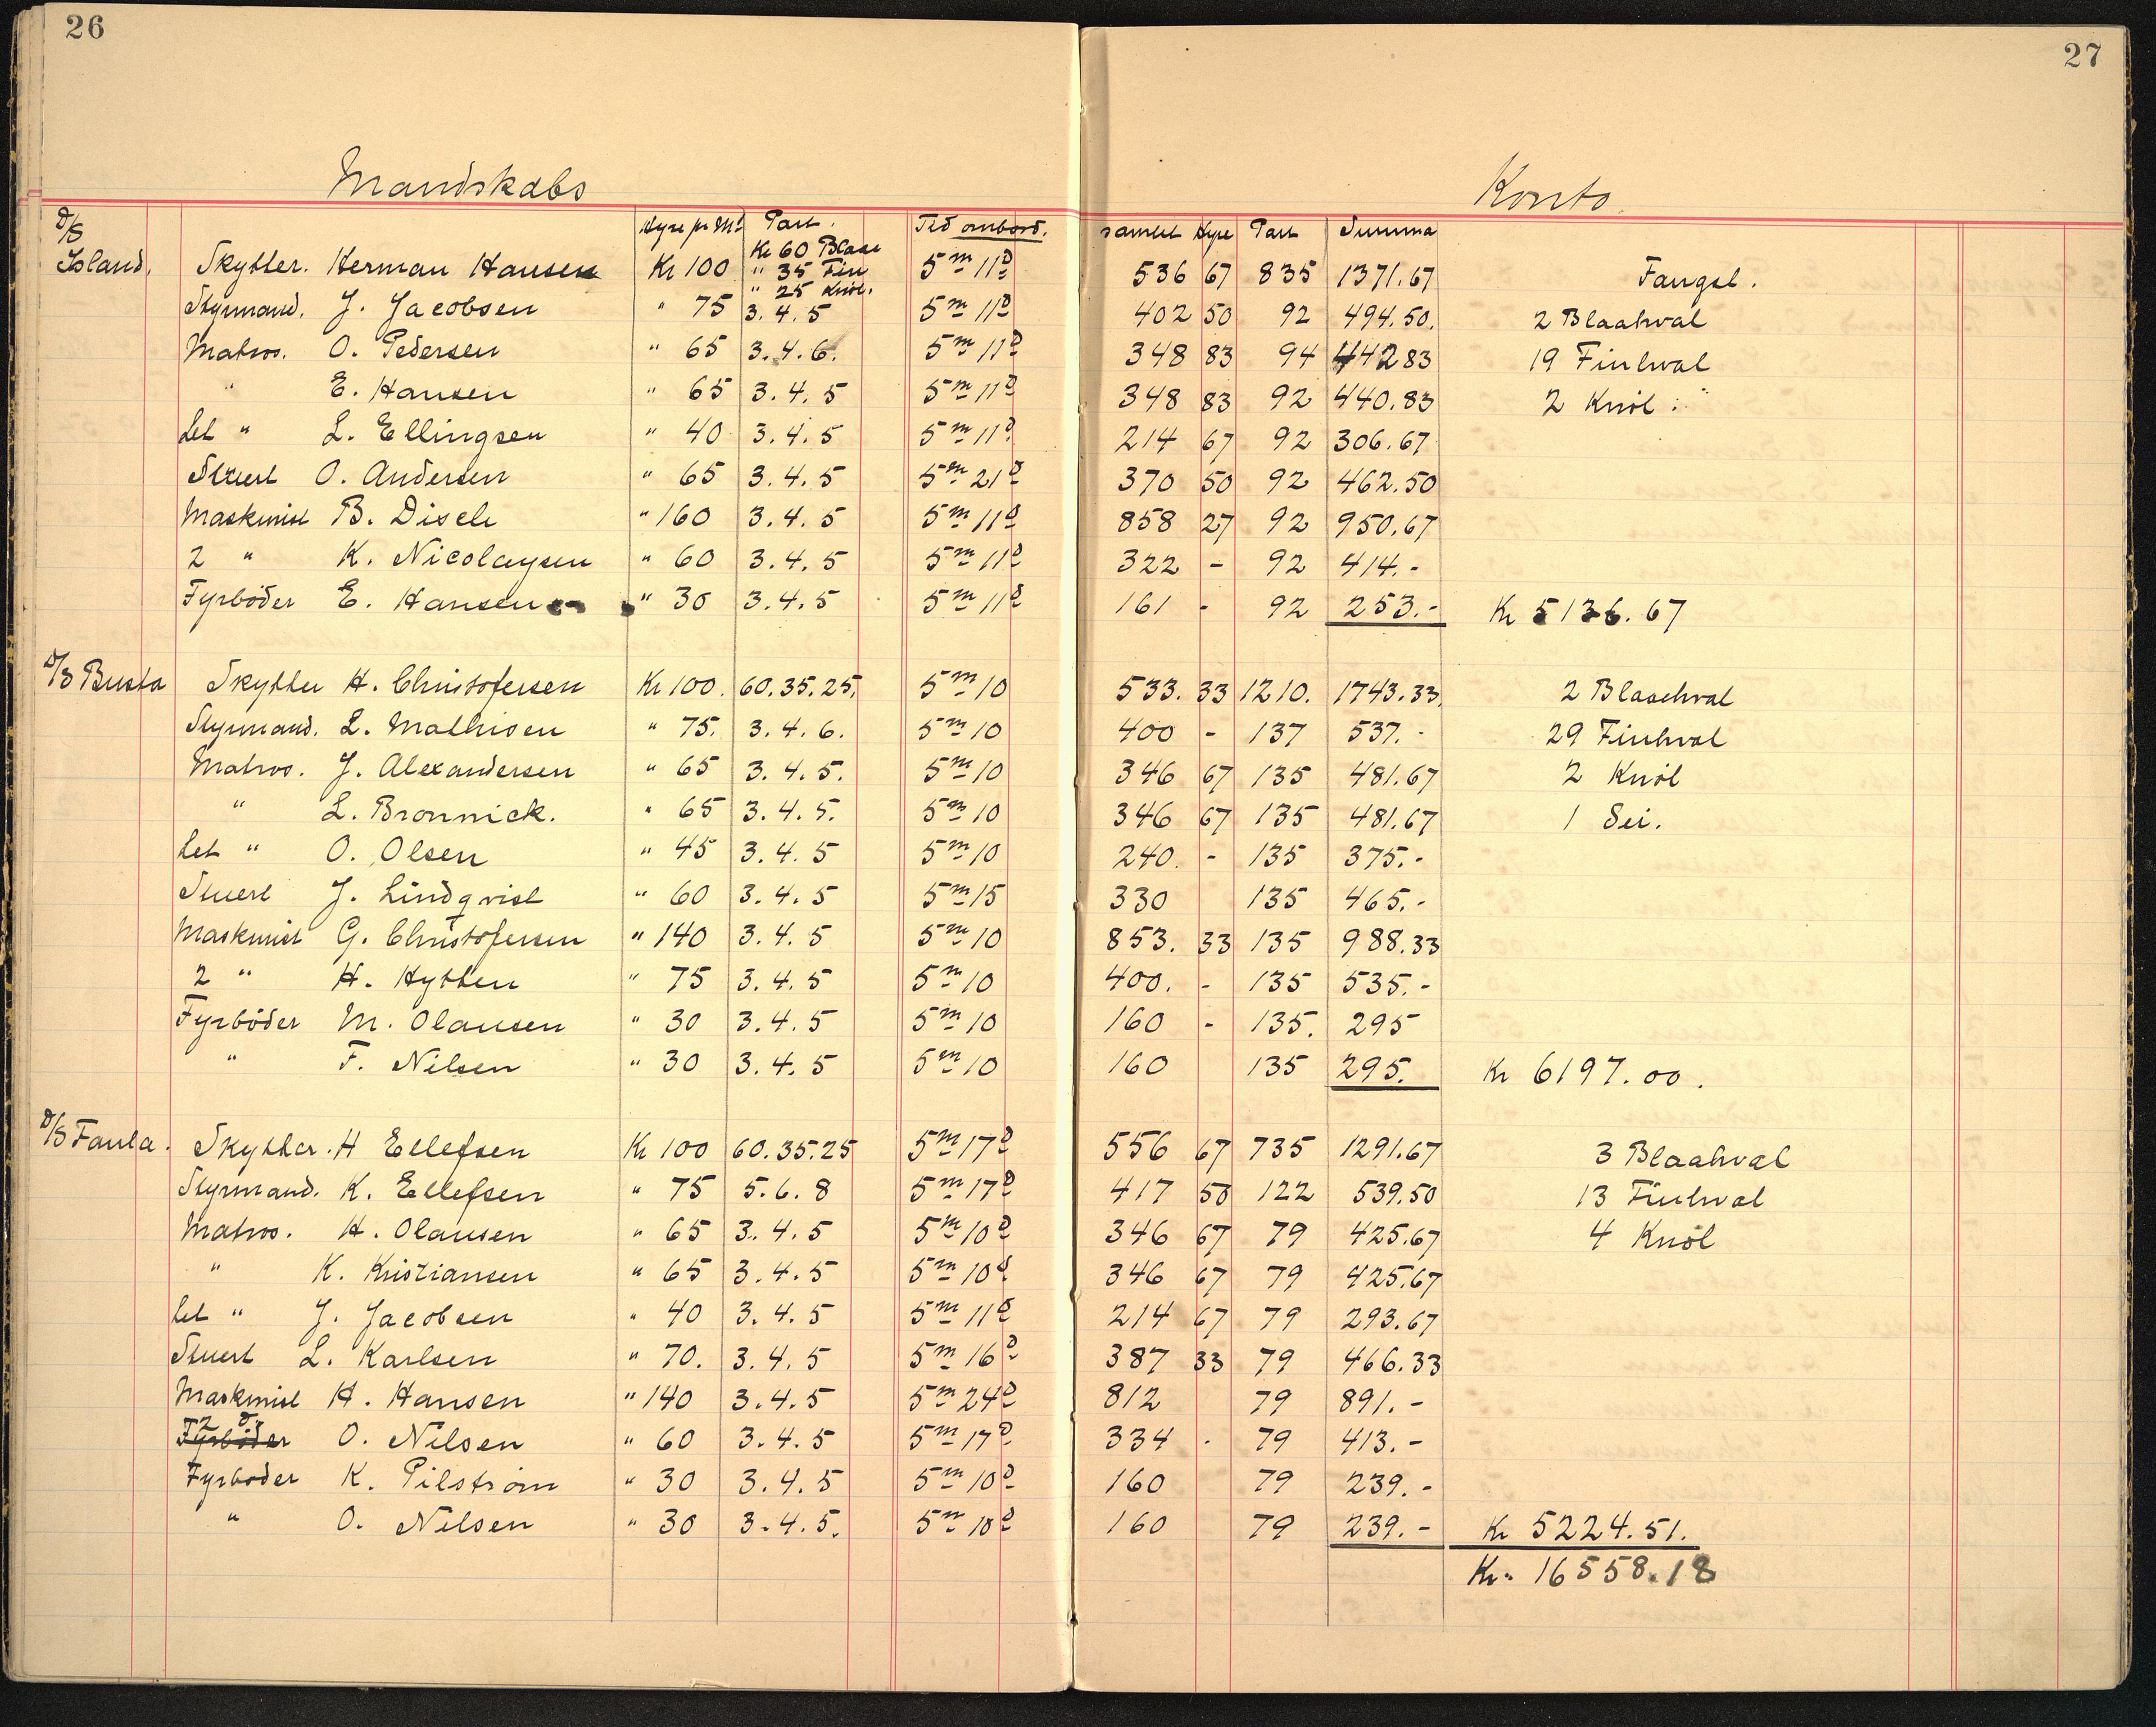 26
27
Mandskabs
Konto
D/S Hyre pr Md Part. Tid ombord. samlet Hyre Part Summa
Kr 60 Blaae
Island. Skytter. Herman Hansen Kr 100 " 35 Fin 5m 11d 536 67 835 1371.67 Fangst.
" 25 Knöl.
Styrmand. J. Jacobsen " 75 3.4.5 5m 11d 402 50 92 494.50. 2 Blaahval
Matros. O. Pedersen " 65 3.4.6. 5m 11d 348 83 94 442 83 19 Finhval
" E. Hansen " 65 3.4.5 5m 11d 348 83 92 440.83 2 Knöl "
Let " L. Ellingsen " 40 3.4.5 5m 11d 214 67 92 306.67
Stuert O. Andersen " 65 3.4.5 5m 21d 370 50 92 462.50
Maskinist B. Disch " 160 3.4.5 5m 11d 858 27 92 950.67
2 " K. Nicolaysen " 60 3.4.5 5m 11d 322 - 92 414.-
Fyrböder E. Hansen " 30 3.4.5 5m 11d 161 - 92 253.- Kr 5136.67
D/S Busta Skytter H. Christofersen Kr 100. 60.35.25. 5m 10 533. 33 1210. 1743.33. 2 Blaaehval
Styrmand. L. Mathisen " 75. 3.4.6. 5m 10 400 - 137 537.- 29 Finhval
Matros. J. Alexandersen " 65 3.4.5. 5m 10 346 67 135 481.67 2 Knöl
" L. Bronnick. " 65 3.4.5. 5m 10 346 67 135 481.67 1 Sei.
Let " O. Olsen " 45 3.4.5 5m 10 240. - 135 375.-
Stuert J. Lindqvist " 60 3.4.5 5m 15 330 135 465.-
Maskinist G. Christofersen " 140 3.4.5 5m 10 853. 33 135 988.33
2 " H. Hytten " 75 3.4.5 5m 10 400. - 135 535.-
Fyrböder M. Olausen " 30 3.4.5 5m 10 160 - 135. 295
" F. Nilsen " 30 3.4.5 5m 10 160 135 295. Kr 6197.00.
D/S Faula. Skytter. H Ellefsen Kr 100 60.35.25 5m 17d 556 67 735 1291.67 3 Blaahval
Styrmand. K. Ellefsen " 75 5.6.8 5m 17d 417 50 122 539.50 13 Finhval
Matros. H. Olausen " 65 3.4.5 5m 10d 346 67 79 425.67 4 Knöl
" K. Kristiansen " 65 3.4.5 5m 10d 346 67 79 425.67
Let " J. Jacobsen " 40 3.4.5 5m 11d 214 67 79 293.67
Stuert L. Karlsen " 70. 3.4.5 5m 16d 387 33 79 466.33
Maskinist H. Hansen " 140 3.4.5 5m 24d 812 79 891.-
2 d.
Fyrböder O. Nilsen " 60 3.4.5 5m 17d 334 - 79 413.-
Fyrböder K. Pilström " 30 3.4.5 5m 10d 160 79 239.-
" O. Nilsen " 30 3.4.5. 5m 10d 160 79 239.- Kr 5224.51.
Kr. 16558.18